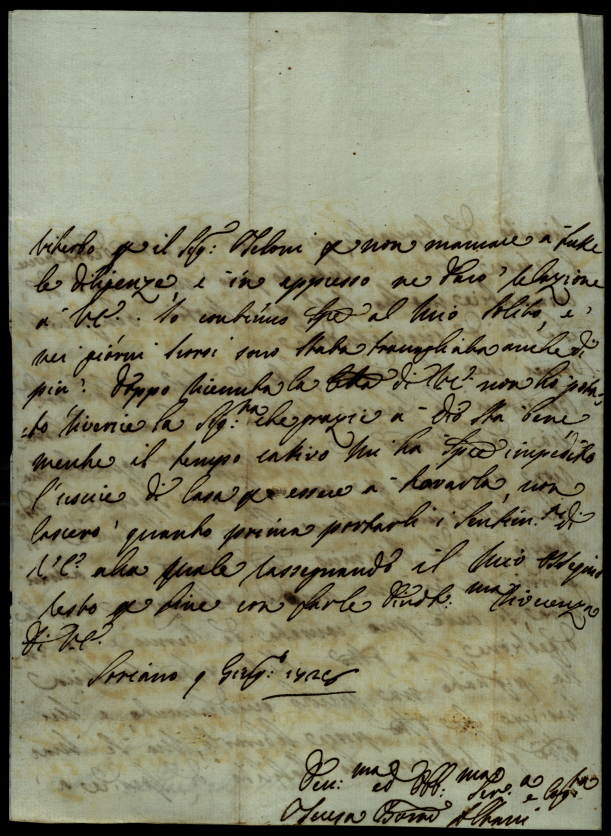 Viterbo p il Sig: Peloni p non mancare a tutte
le diligenze e in appresso ne darò relazione
a V.E. Io continuo sempre al mio solito, e
nei giorni scorsi sono stata travagliata anche di
più. Doppo ricevuta la di V.E. non ho potu-
to riverire la Sig:ra che grazie a Dio sta bene
mentre il tempo cativo mi ha sempre impedito
l'uscire di casa p essere a trovarla, non
lascerò quanto prima portarli i sentim:ti di
V.E. alla quale rassegnando il mio ossequio
resto p fine con farle
di V.E.
Soriano 9 Giug:
Dev:ma ed Obb:ma Ser:a e
Teresa Albani